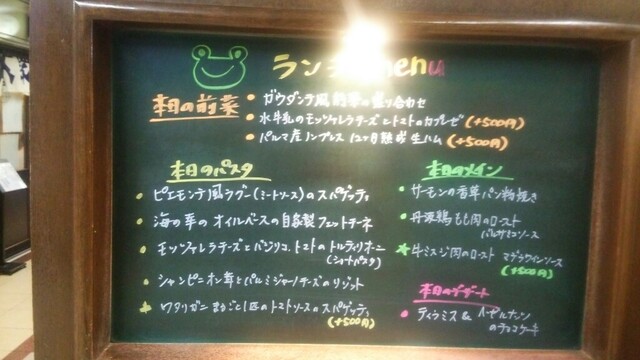 ランチ menu
本日の前菜
• ガウダンテ風前菜の盛り合わせ
• 水牛乳のモッツァレラチーズとトマトのカプレーゼ (+500円)
• パルマ産 12ヶ月熟成生ハム (+500円)
本日のパスタ
• ピエモンテ風ラグー(ミートソース)のスパゲッティ
• 海の幸のオイルベースの自家製フェットチーネ
• モッツァレラチーズとバジリコ、トマトのトルティリオーニ
(ショートパスタ)
• シャンピニオン茸とパルミジャーノチーズのリゾット
ワタリガニまるごと1匹のトマトソースのスパゲッティ
(+500円)
本日のメイン
• サーモンの香草パン粉焼き
• 丹波鶏もも肉のロースト
バルサミコソース
★ 牛ミスジ肉のロースト マデラワインソース
(+500円)
本日のデザート
• ティラミス &
のチョコケーキ